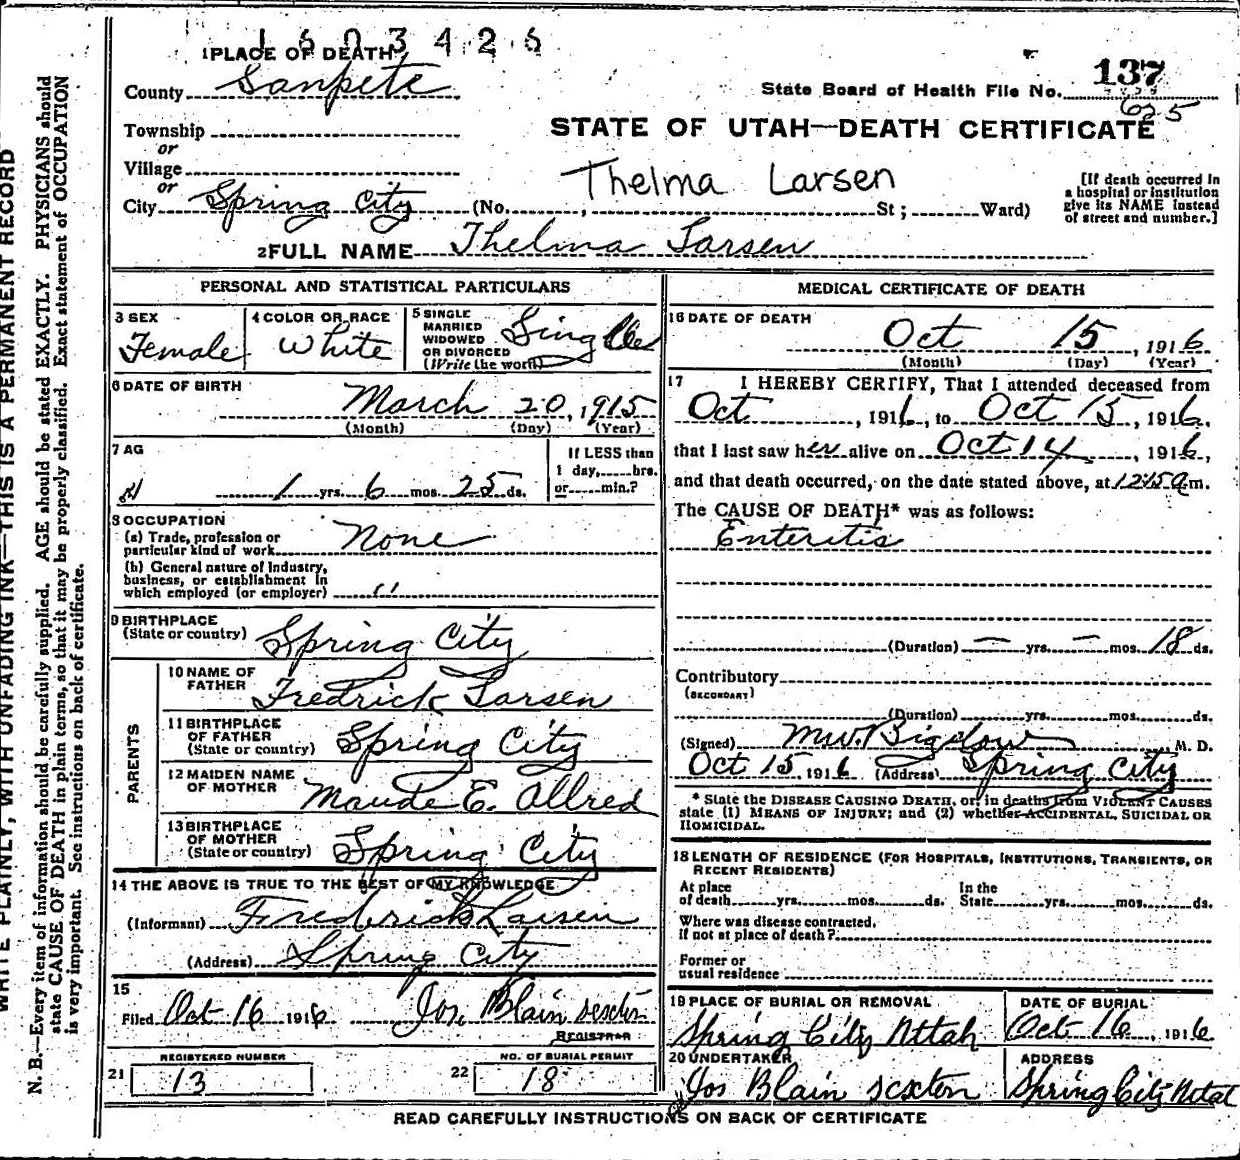 1603426
1 PLACE OF DEATH
County Sanpete
State Board of Health File No. 137
625
Township
or
Village
or
City Spring City (No. , St ; Ward)
STATE OF UTAH—DEATH CERTIFICATE
Thelma Larsen
[If death occurred in
a hospital or institution
give its NAME instead
of street and number.]
2 FULL NAME Thelma Larsen
PERSONAL AND STATISTICAL PARTICULARS
3 SEX
Female
4 COLOR OR RACE
White
5 SINGLE
MARRIED
WIDOWED
OR DIVORCED
(Write the word)
Single
6 DATE OF BIRTH
March 20, 1915
(Month) (Day) (Year)
7 AG
1 yrs. 6 mos. 25 ds.
If LESS than
1 day, hrs.
or min.?
8 OCCUPATION
(a) Trade, profession or
particular kind of work None
(b) General nature of Industry,
business, or establishment in
which employed (or employer) "
9 BIRTHPLACE
(State or country) Spring City
PARENTS
10 NAME OF
FATHER Fredrick Larsen
11 BIRTHPLACE
OF FATHER
(State or country) Spring City
12 MAIDEN NAME
OF MOTHER Maude E. Allred
13 BIRTHPLACE
OF MOTHER
(State or country) Spring City
14 THE ABOVE IS TRUE TO THE BEST OF MY KNOWLEDGE
(Informant) Frederick Larsen
(Address) Spring City
15
Filed Oct 16 1916 Jos. Blain sexton
REGISTRAR
REGISTERED NUMBER
21 13
NO. OF BURIAL PERMIT
22 18
MEDICAL CERTIFICATE OF DEATH
16 DATE OF DEATH
Oct 15, 1916
(Month) (Day) (Year)
17 I HEREBY CERTIFY, That I attended deceased from
Oct , 1916, to Oct 15, 1916,
that I last saw her alive on Oct 14, 1916,
and that death occurred, on the date stated above, at 12:15 a.m.
The CAUSE OF DEATH* was as follows:
Enteritis
(Duration) — yrs. — mos. 18 ds.
Contributory
(SECONDARY)
(Duration) yrs. mos. ds.
(Signed) M.W. Bigelow M. D.
Oct 15, 1916 (Address) Spring City
* State the DISEASE CAUSING DEATH, or, in deaths from VIOLENT CAUSES
state (1) MEANS OF INJURY; and (2) whether ACCIDENTAL, SUICIDAL OR
HOMICIDAL.
18 LENGTH OF RESIDENCE (FOR HOSPITALS, INSTITUTIONS, TRANSIENTS, OR
RECENT RESIDENTS)
At place In the
of death yrs. mos. ds. State yrs. mos. ds.
Where was disease contracted,
if not at place of death?
Former or
usual residence
19 PLACE OF BURIAL OR REMOVAL
Spring City Uttah
DATE OF BURIAL
Oct 16, 1916
20 UNDERTAKER
Jos Blain sexton
ADDRESS
Spring City Utah
READ CAREFULLY INSTRUCTIONS ON BACK OF CERTIFICATE
WRITE PLAINLY, WITH UNFADING INK—THIS IS A PERMANENT RECORD
N. B.—Every item of information should be carefully supplied. AGE should be stated EXACTLY. PHYSICIANS should
state CAUSE OF DEATH in plain terms, so that it may be properly classified. Exact statement of OCCUPATION
is very important. See instructions on back of certificate.